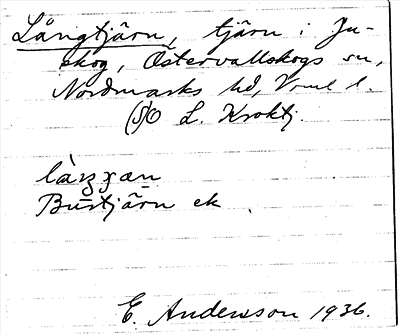 Långtjärn, tjärn i Ju-
skog, Östervallskogs sn,
Nordmarks hd, Vrml l.
(S)O L. Kroktj.
Bustjärn ek
E. Andersson 1936.